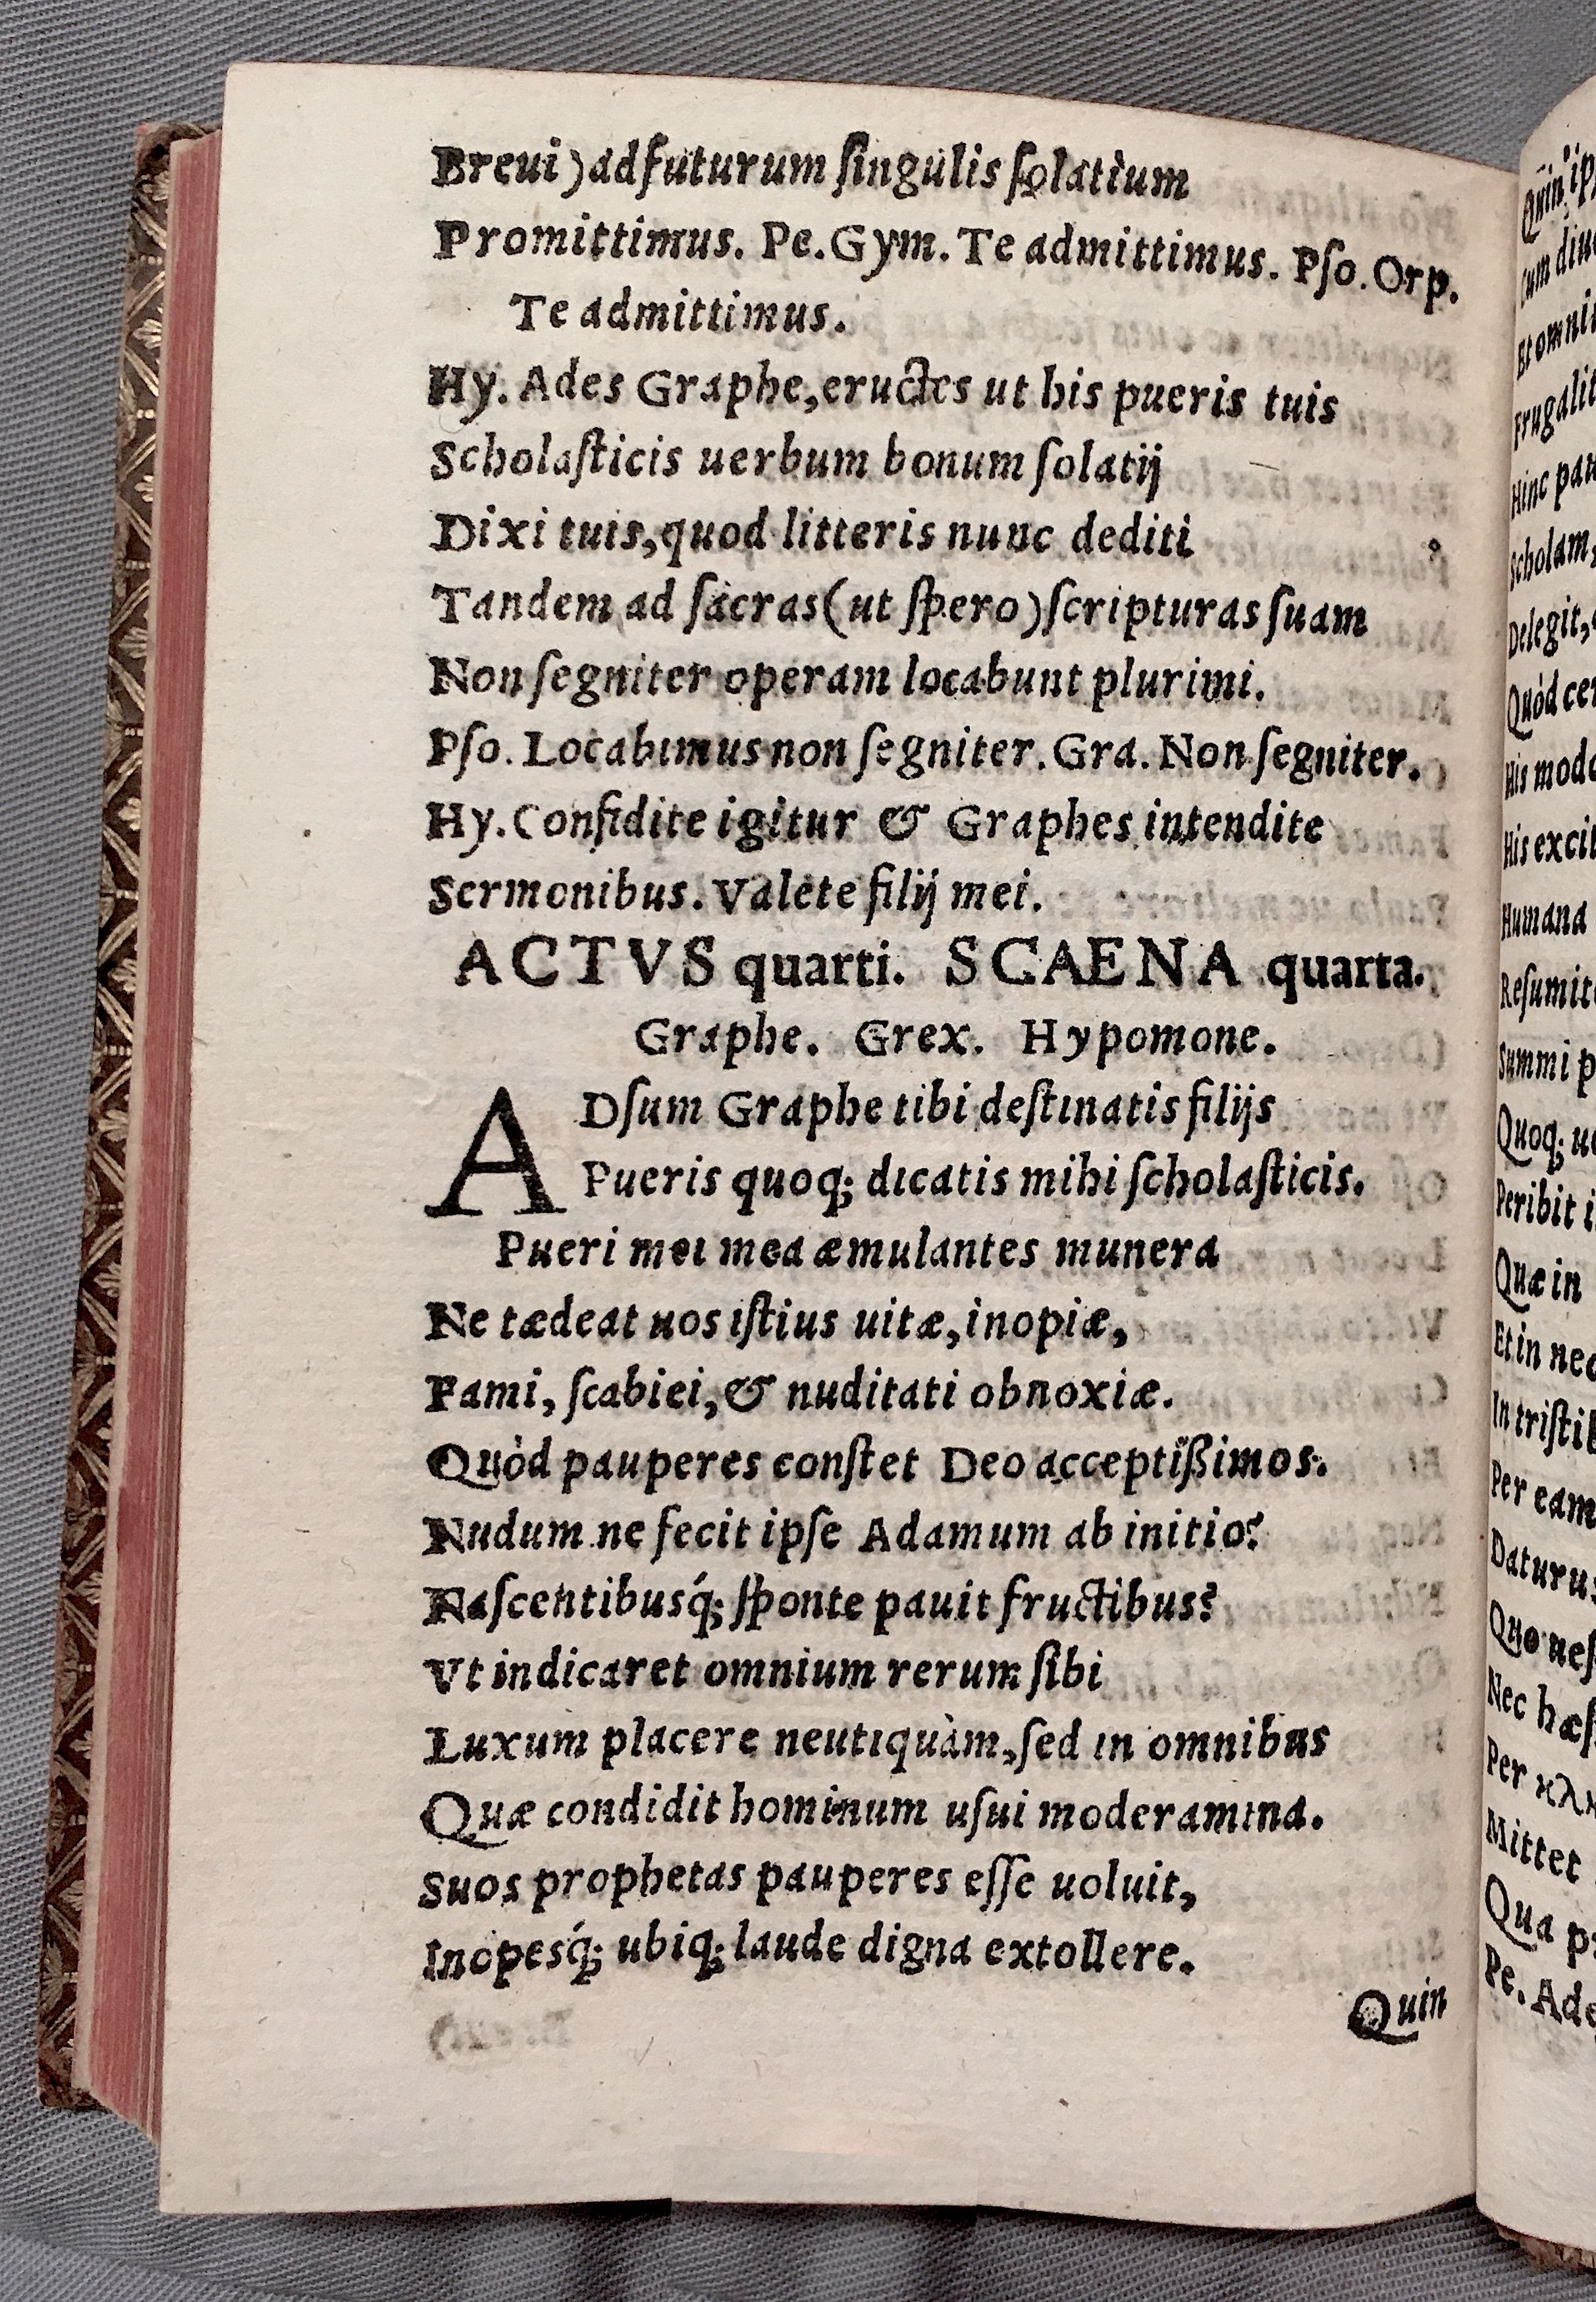 Breui) adfuturum ſingulis ſolatium
Promittimus. Pe. Gym. Te admittimus. Pſo. Orp.
Te admittimus.
Hy. Ades Graphe, eructes ut his pueris tuis
Scholaſticis uerbum bonum ſolatij
Dixi tuis, quod litteris nunc dediti
Tandem ad ſacras (ut ſpero) ſcripturas ſuam
Non ſegniter operam locabunt plurimi.
Pſo. Locabimus non ſegniter. Gra. Non ſegniter.
Hy. Confidite igitur & Graphes intendite
Sermonibus. Valete filij mei.
ACTVS quarti. SCAENA quarta.
Graphe. Grex. Hypomone.
ADſum Graphe tibi deſtinatis filijs
Pueris quoq; dicatis mihi ſcholaſticis.
Pueri mei mea æmulantes munera
Ne tædeat uos iſtius uitæ, inopiæ,
Fami, ſcabiei, & nuditati obnoxiæ.
Quòd pauperes conſtet Deo acceptißimos.
Nudum ne fecit ipſe Adamum ab initio?
Naſcentibusq́; ſponte pauit fructibus?
Vt indicaret omnium rerum ſibi
Luxum placere neutiquàm, ſed in omnibus
Quæ condidit hominum uſui moderamina.
Suos prophetas pauperes eſſe uoluit,
Inopesq́; ubiq; laude digna extollere.
Quin
Cum
Et omni
Hinc
Scholam,
Delegit,
Quòd
His
His
Humana
Summi
Quoq;
Peribit
Quæ in
Et in
In
Per eam
Quo
Nec
Per
Mittet
Qua
Pe.